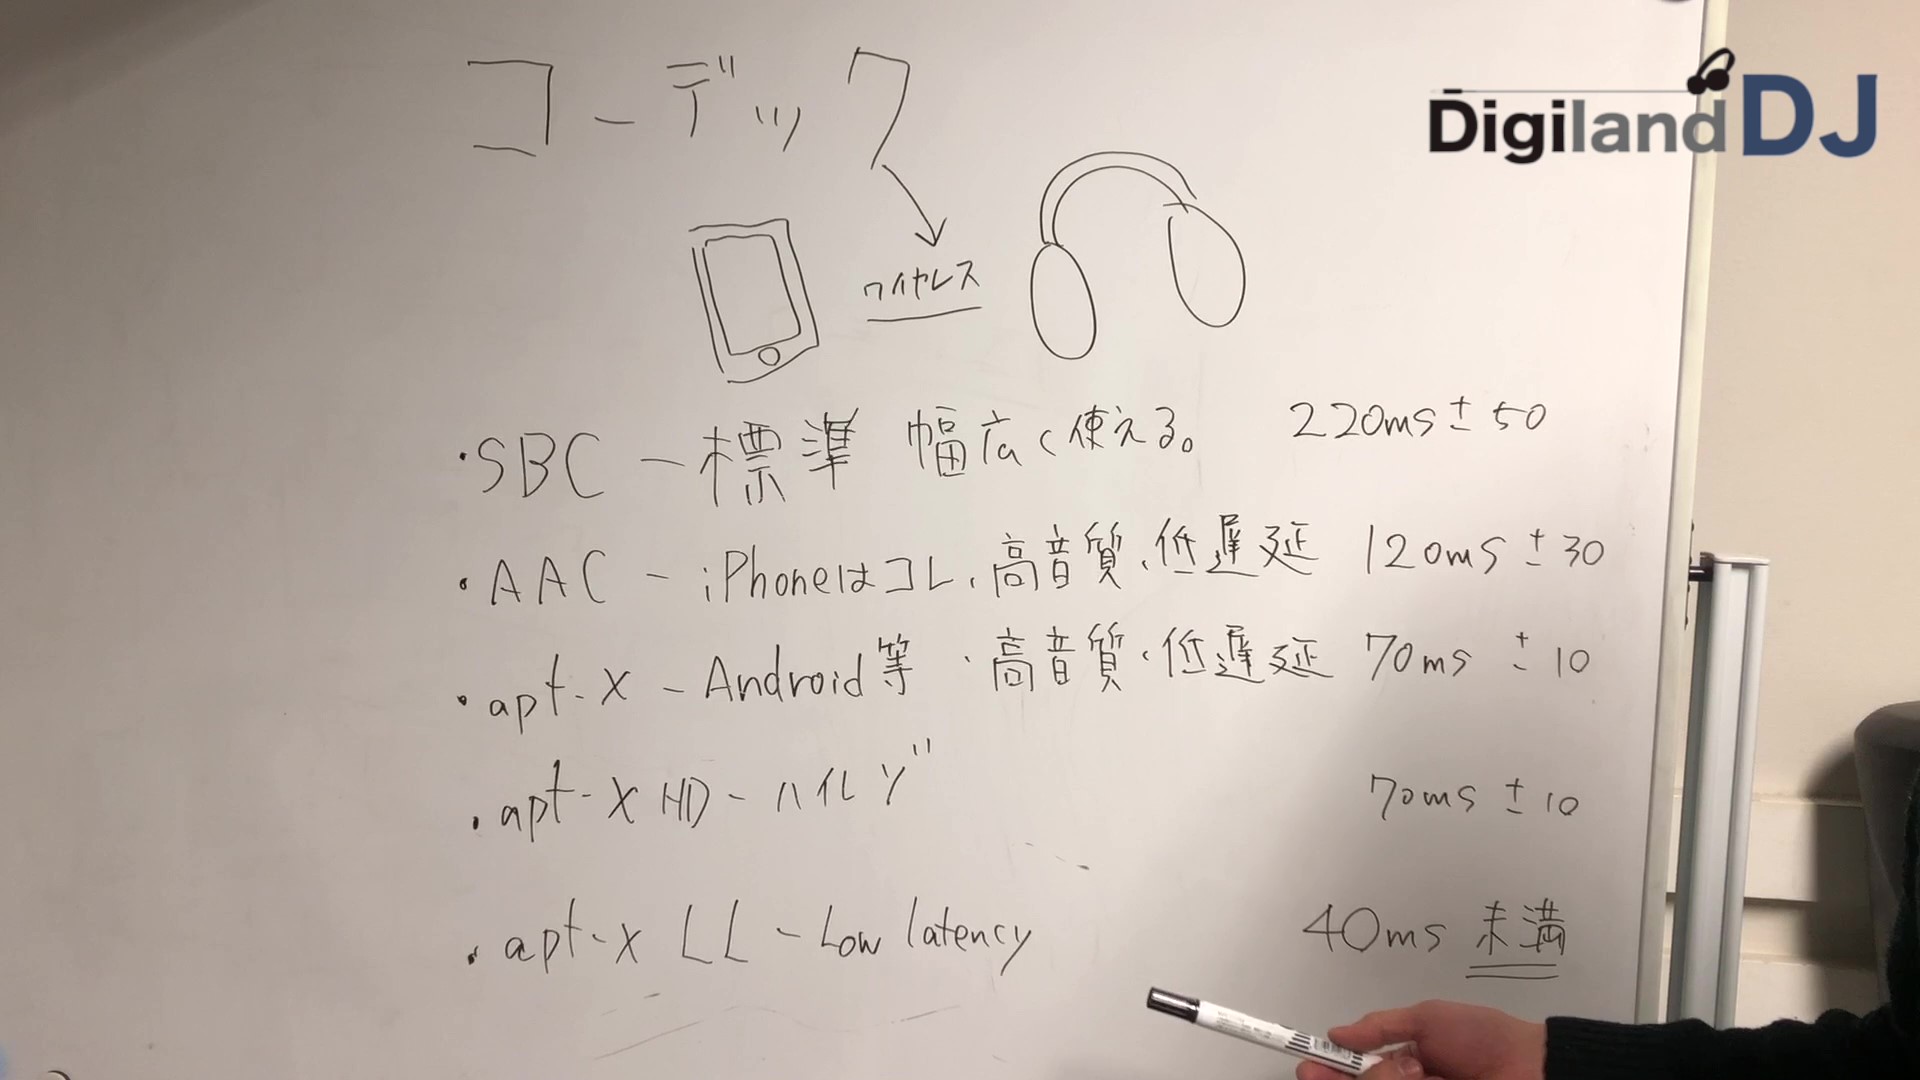 コーデック
Digiland DJ
ワイヤレス
・SBC － 標準 幅広く使える。 220ms ± 50
・AAC － iPhoneはコレ、高音質、低遅延 120ms ± 30
・apt-X － Android等 ・高音質・低遅延 70ms ± 10
・apt-X HD － ハイレゾ 70ms ± 10
・apt-X LL － Low latency 40ms 未満